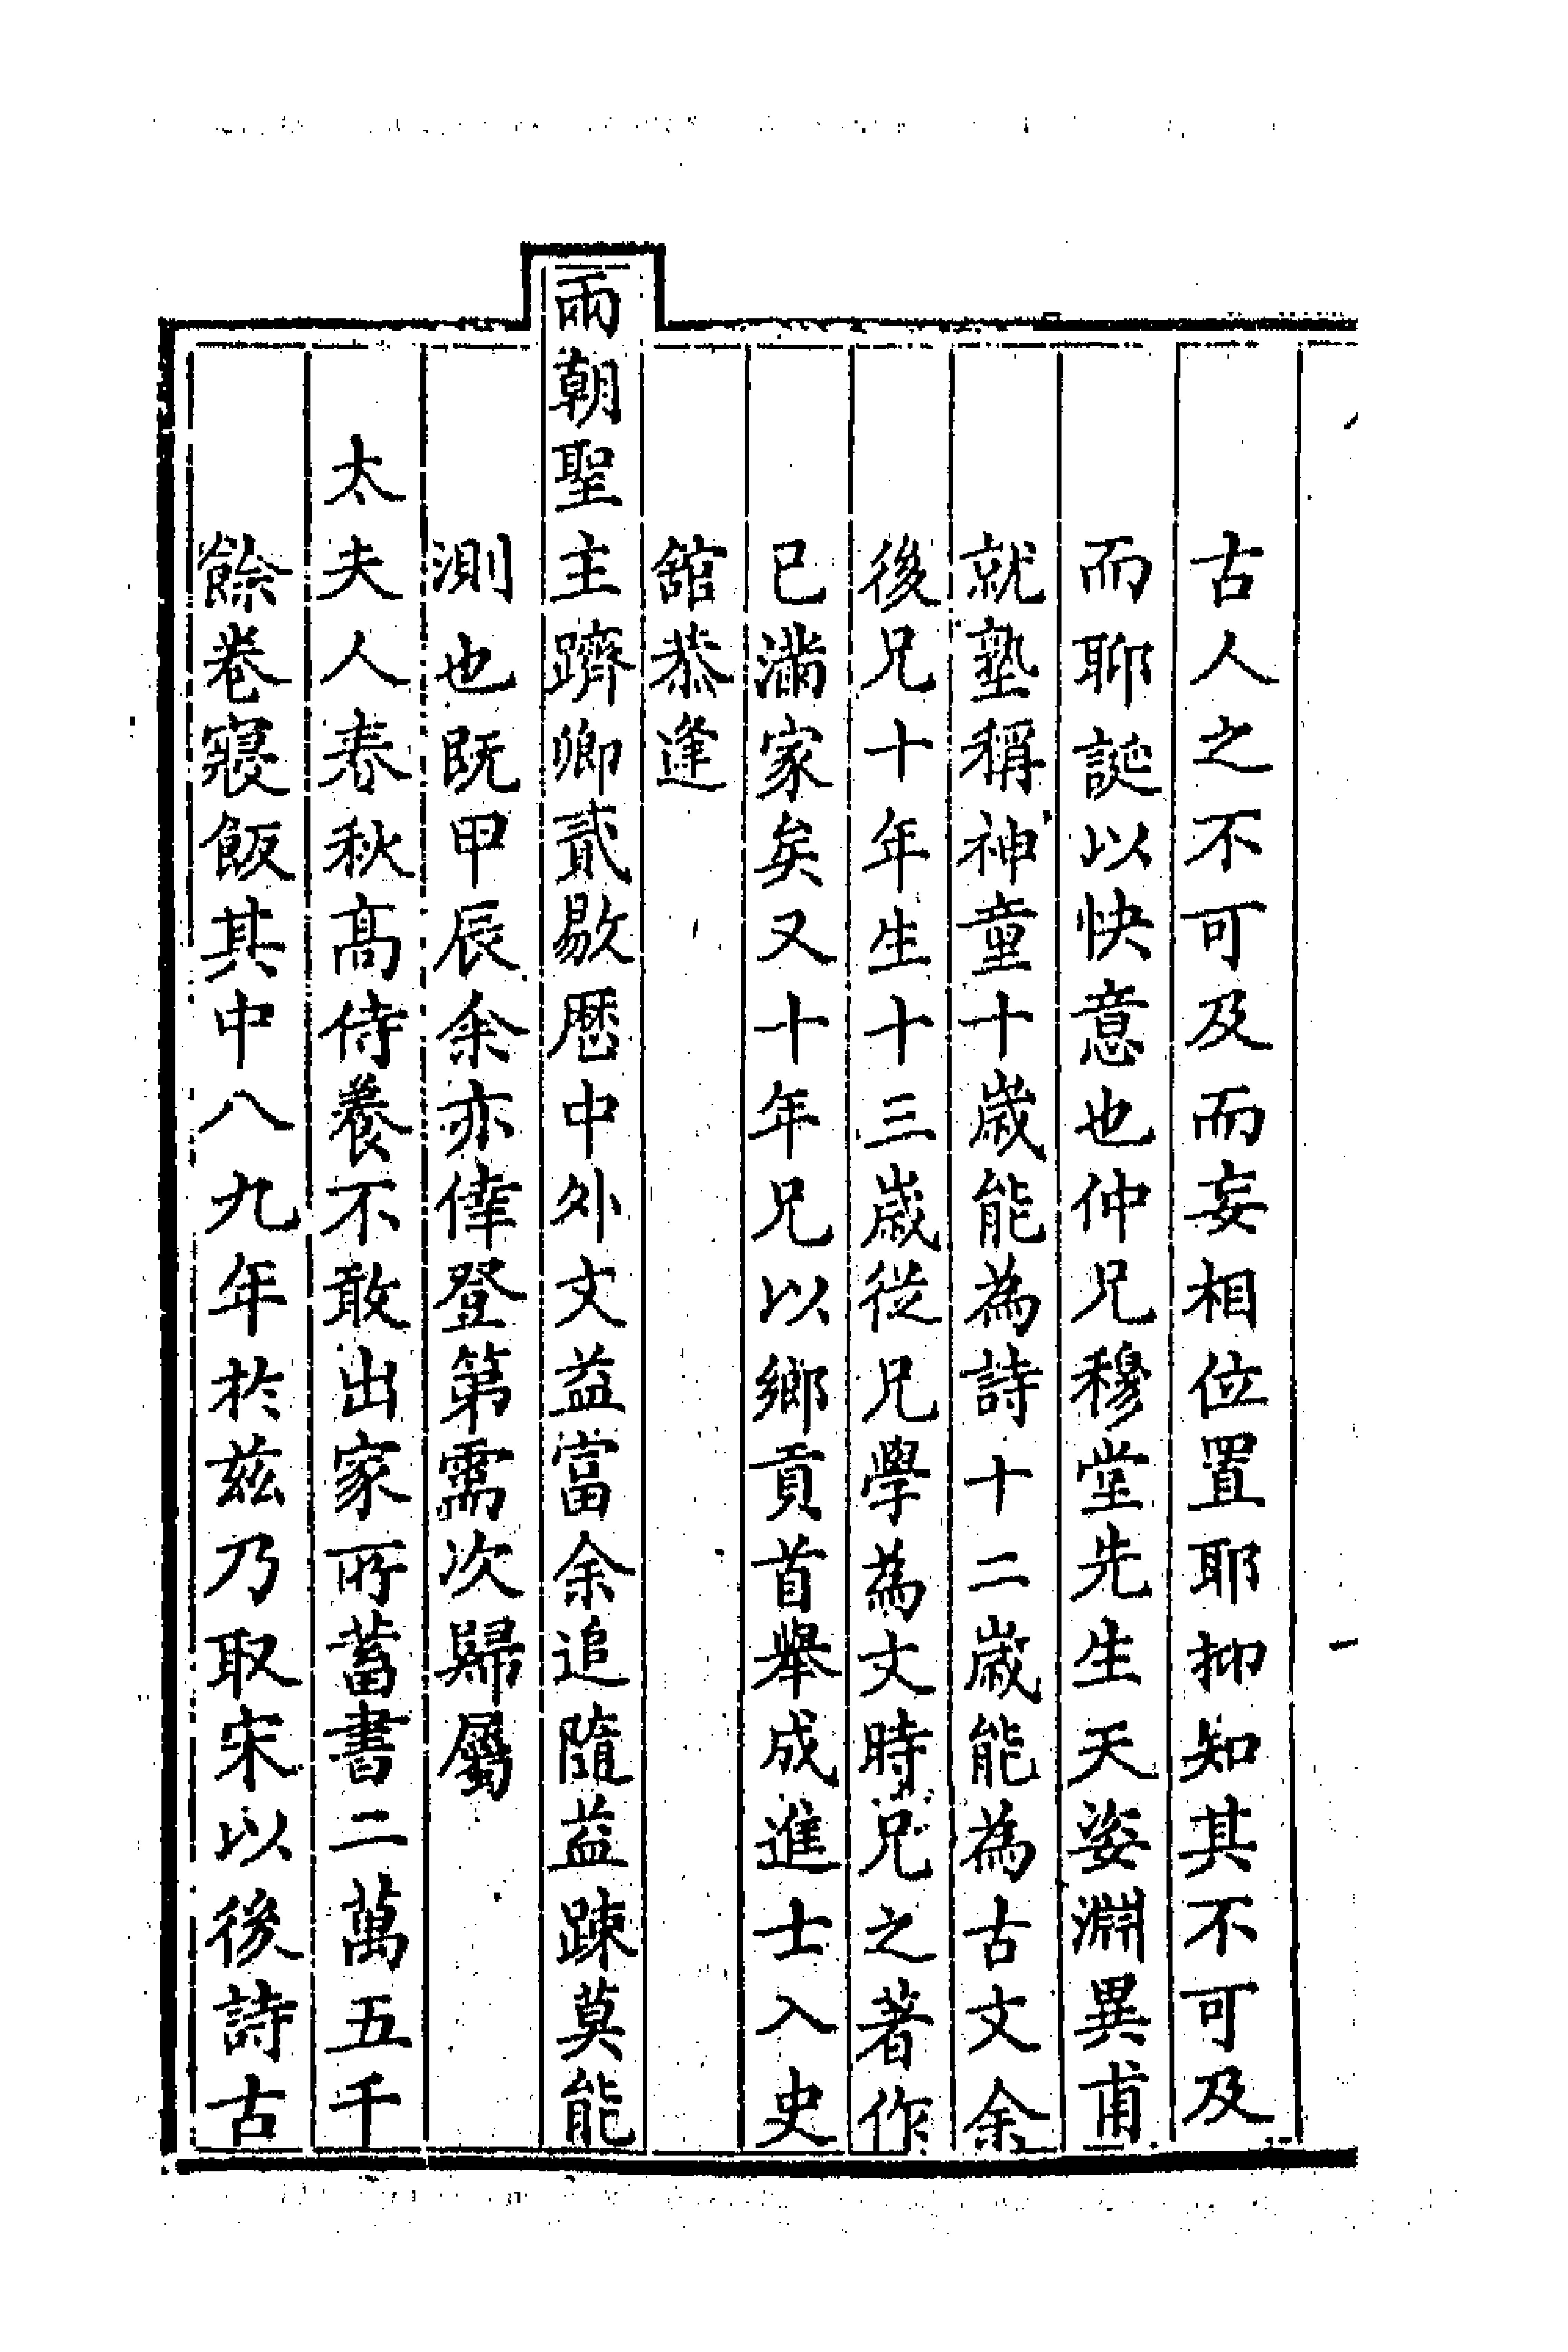 古人之不可及而妄相位置耶抑知其不可及
而聊誕以快意也仲兄穆堂先生天姿淵異甫
就塾稱神童十歲能為詩十二歲能為古文余
後兄十年生十三歲從兄學為文時兄之著作
已滿家矣又十年兄以鄉貢首舉成進士入史
舘恭逢
兩朝聖主躋卿貳敭歷中外文益富余追隨益踈莫能
測也既甲辰余亦倖登第需次歸屬
太夫人春秋高侍養不敢出家所蓄書二萬五千
餘卷寢飯其中八九年於兹乃取宋以後詩古